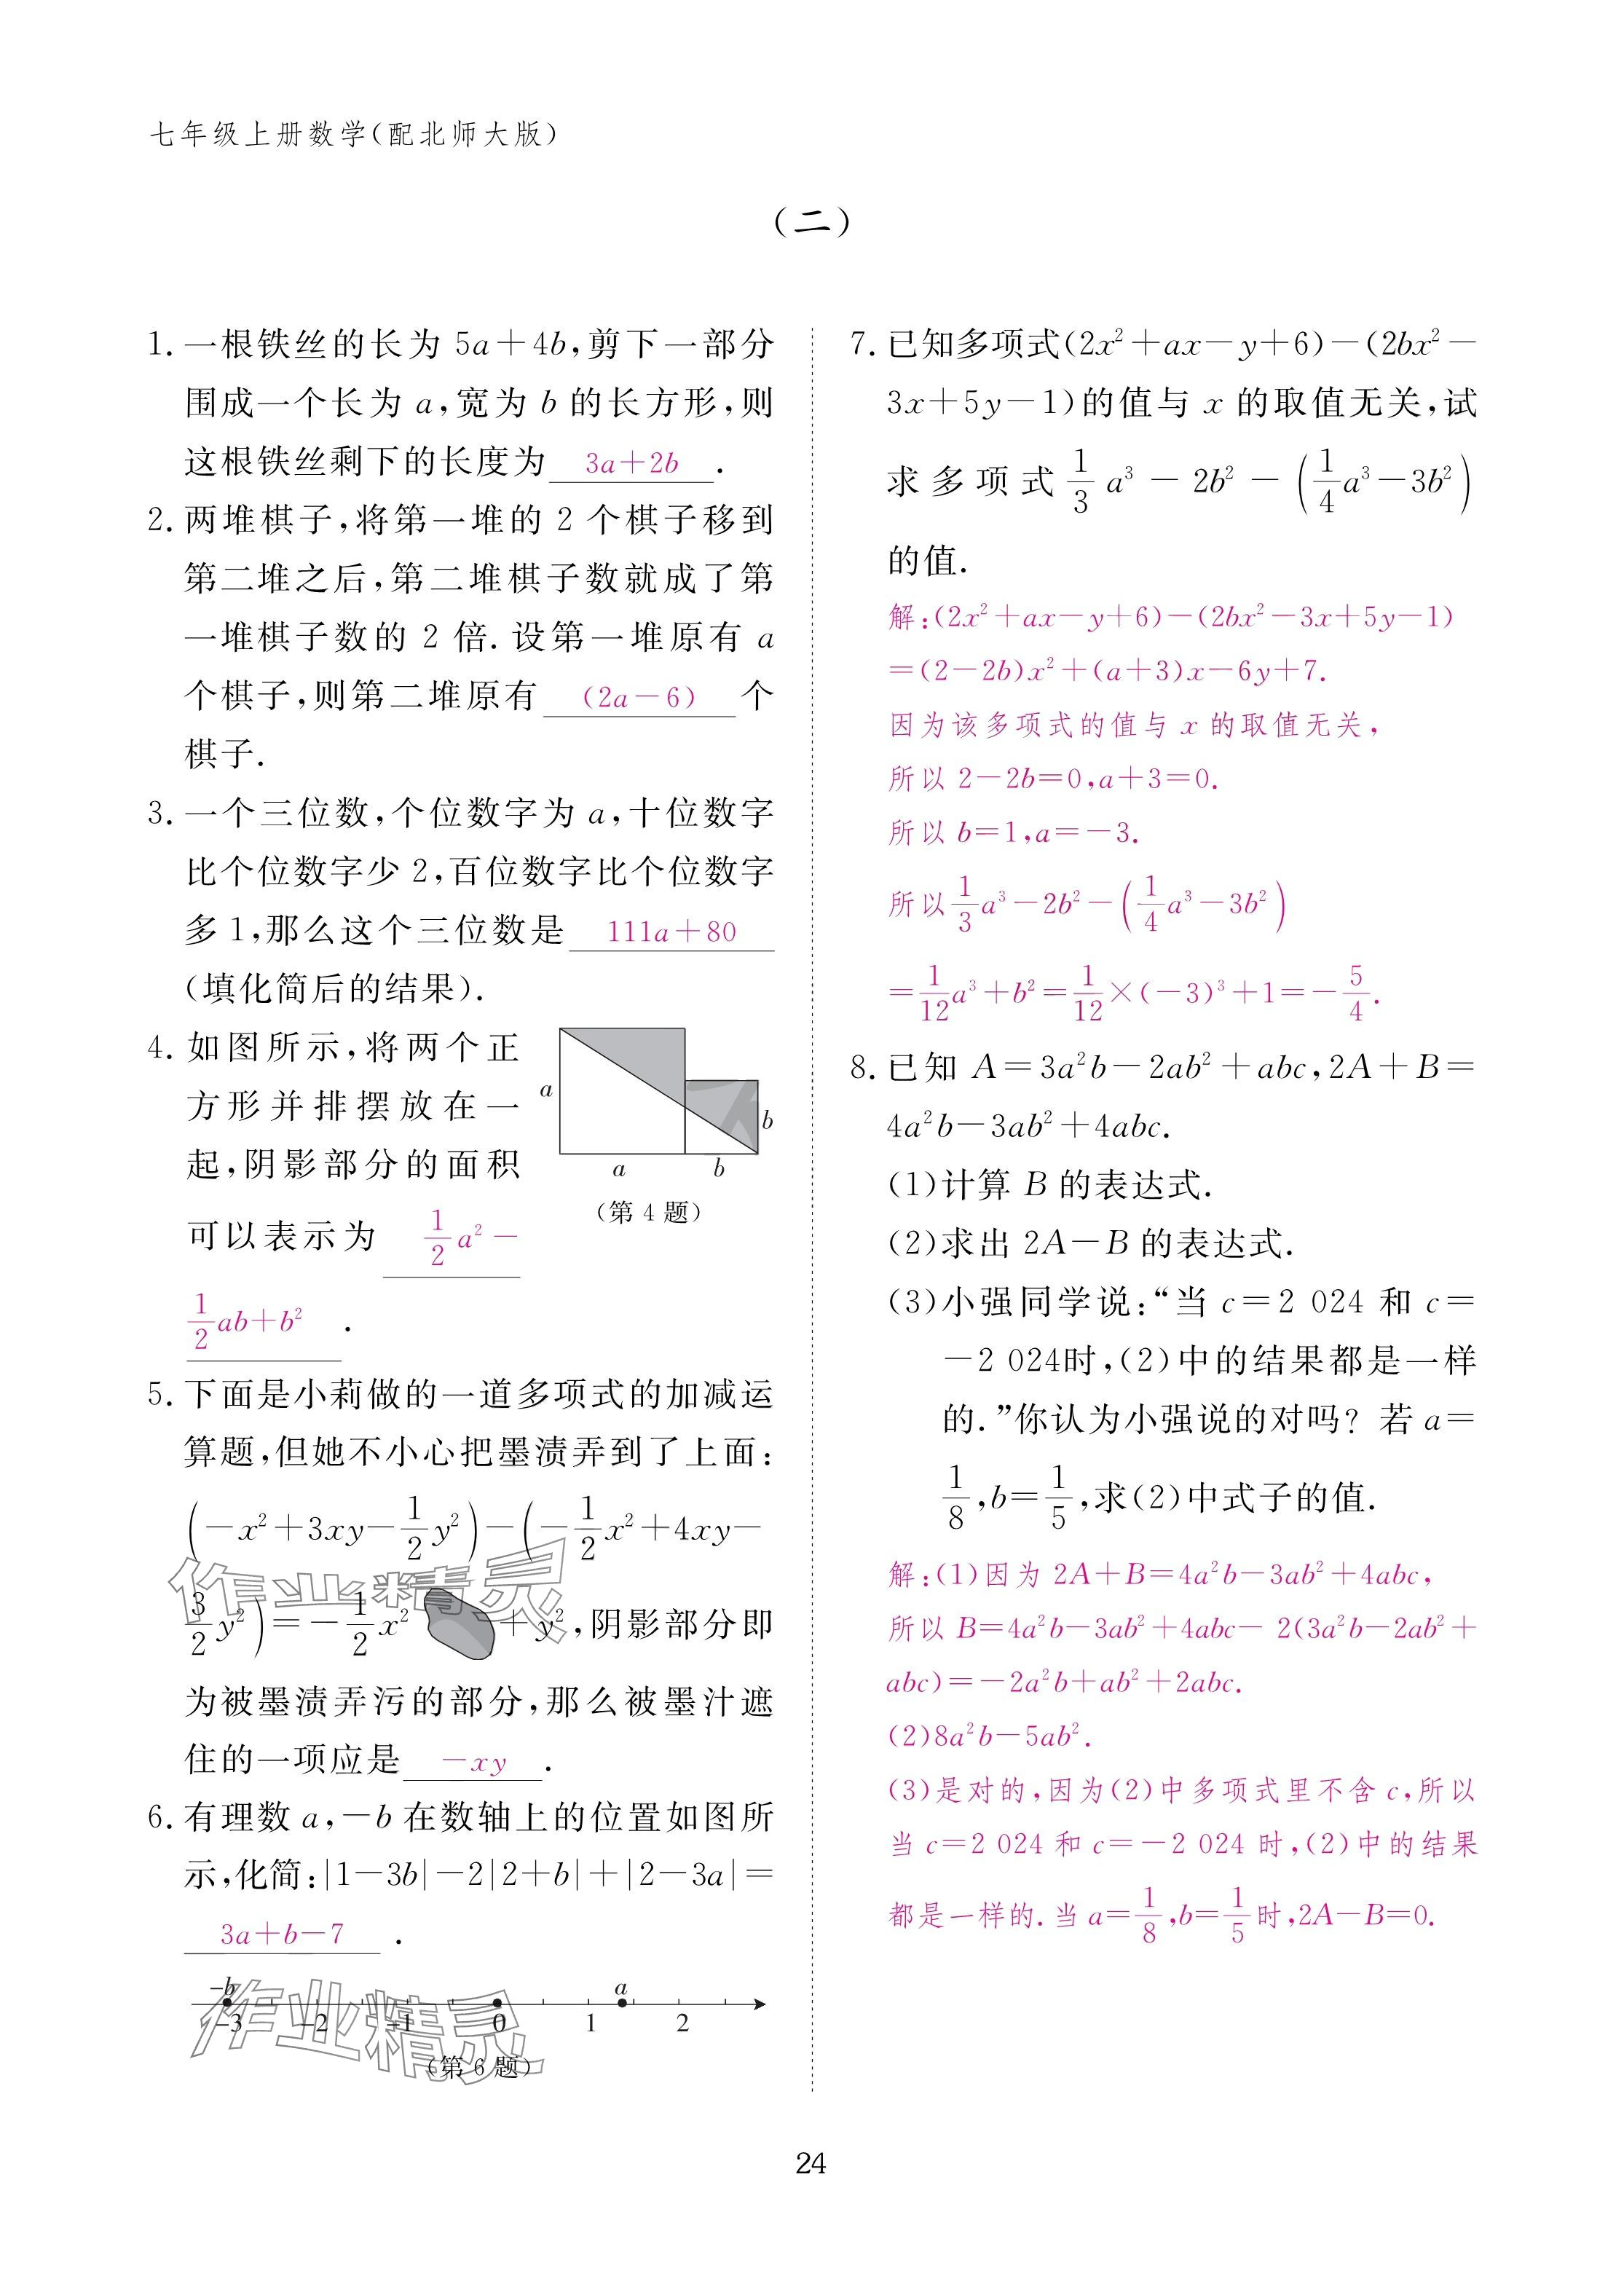 七年级上册数学(配北师大版)
(二)
1. 一根铁丝的长为 5a+4b,剪下一部分
围成一个长为 a,宽为 b 的长方形,则
这根铁丝剩下的长度为 3a+2b .
2. 两堆棋子,将第一堆的 2 个棋子移到
第二堆之后,第二堆棋子数就成了第
一堆棋子数的 2 倍. 设第一堆原有 a
个棋子,则第二堆原有 (2a-6) 个
棋子.
3. 一个三位数,个位数字为 a,十位数字
比个位数字少 2,百位数字比个位数字
多 1,那么这个三位数是 111a+80
(填化简后的结果).
4. 如图所示,将两个正
方形并排摆放在一
起,阴影部分的面积
可以表示为 1/2 a² -
1/2 ab+b² .
a
b
a
b
(第 4 题)
5. 下面是小莉做的一道多项式的加减运
算题,但她不小心把墨渍弄到了上面:
(-x²+3xy-1/2 y²)-(-1/2 x²+4xy-
3/2 y²)=-1/2 x² +y²,阴影部分即
为被墨渍弄污的部分,那么被墨汁遮
住的一项应是 -xy .
6. 有理数 a,-b 在数轴上的位置如图所
示,化简:|1-3b|-2|2+b|+|2-3a|=
3a+b-7 .
-b a
-3 -2 -1 0 1 2
(第 6 题)
作业精灵
作业精灵
7. 已知多项式(2x²+ax-y+6)-(2bx²-
3x+5y-1)的值与 x 的取值无关,试
求多项式 1/3 a³ - 2b² - (1/4 a³-3b²)
的值.
解:(2x²+ax-y+6)-(2bx²-3x+5y-1)
=(2-2b)x²+(a+3)x-6y+7.
因为该多项式的值与 x 的取值无关,
所以 2-2b=0,a+3=0.
所以 b=1,a=-3.
所以 1/3 a³-2b²-(1/4 a³-3b²)
=1/12 a³+b²=1/12×(-3)³+1=-5/4.
8. 已知 A=3a²b-2ab²+abc,2A+B=
4a²b-3ab²+4abc.
(1)计算 B 的表达式.
(2)求出 2A-B 的表达式.
(3)小强同学说:“当 c=2 024 和 c=
-2 024时,(2)中的结果都是一样
的.”你认为小强说的对吗? 若 a=
1/8,b=1/5,求(2)中式子的值.
解:(1)因为 2A+B=4a²b-3ab²+4abc,
所以 B=4a²b-3ab²+4abc- 2(3a²b-2ab²+
abc)=-2a²b+ab²+2abc.
(2)8a²b-5ab².
(3)是对的,因为(2)中多项式里不含 c,所以
当 c=2 024 和 c=-2 024 时,(2)中的结果
都是一样的. 当 a=1/8,b=1/5时,2A-B=0.
24